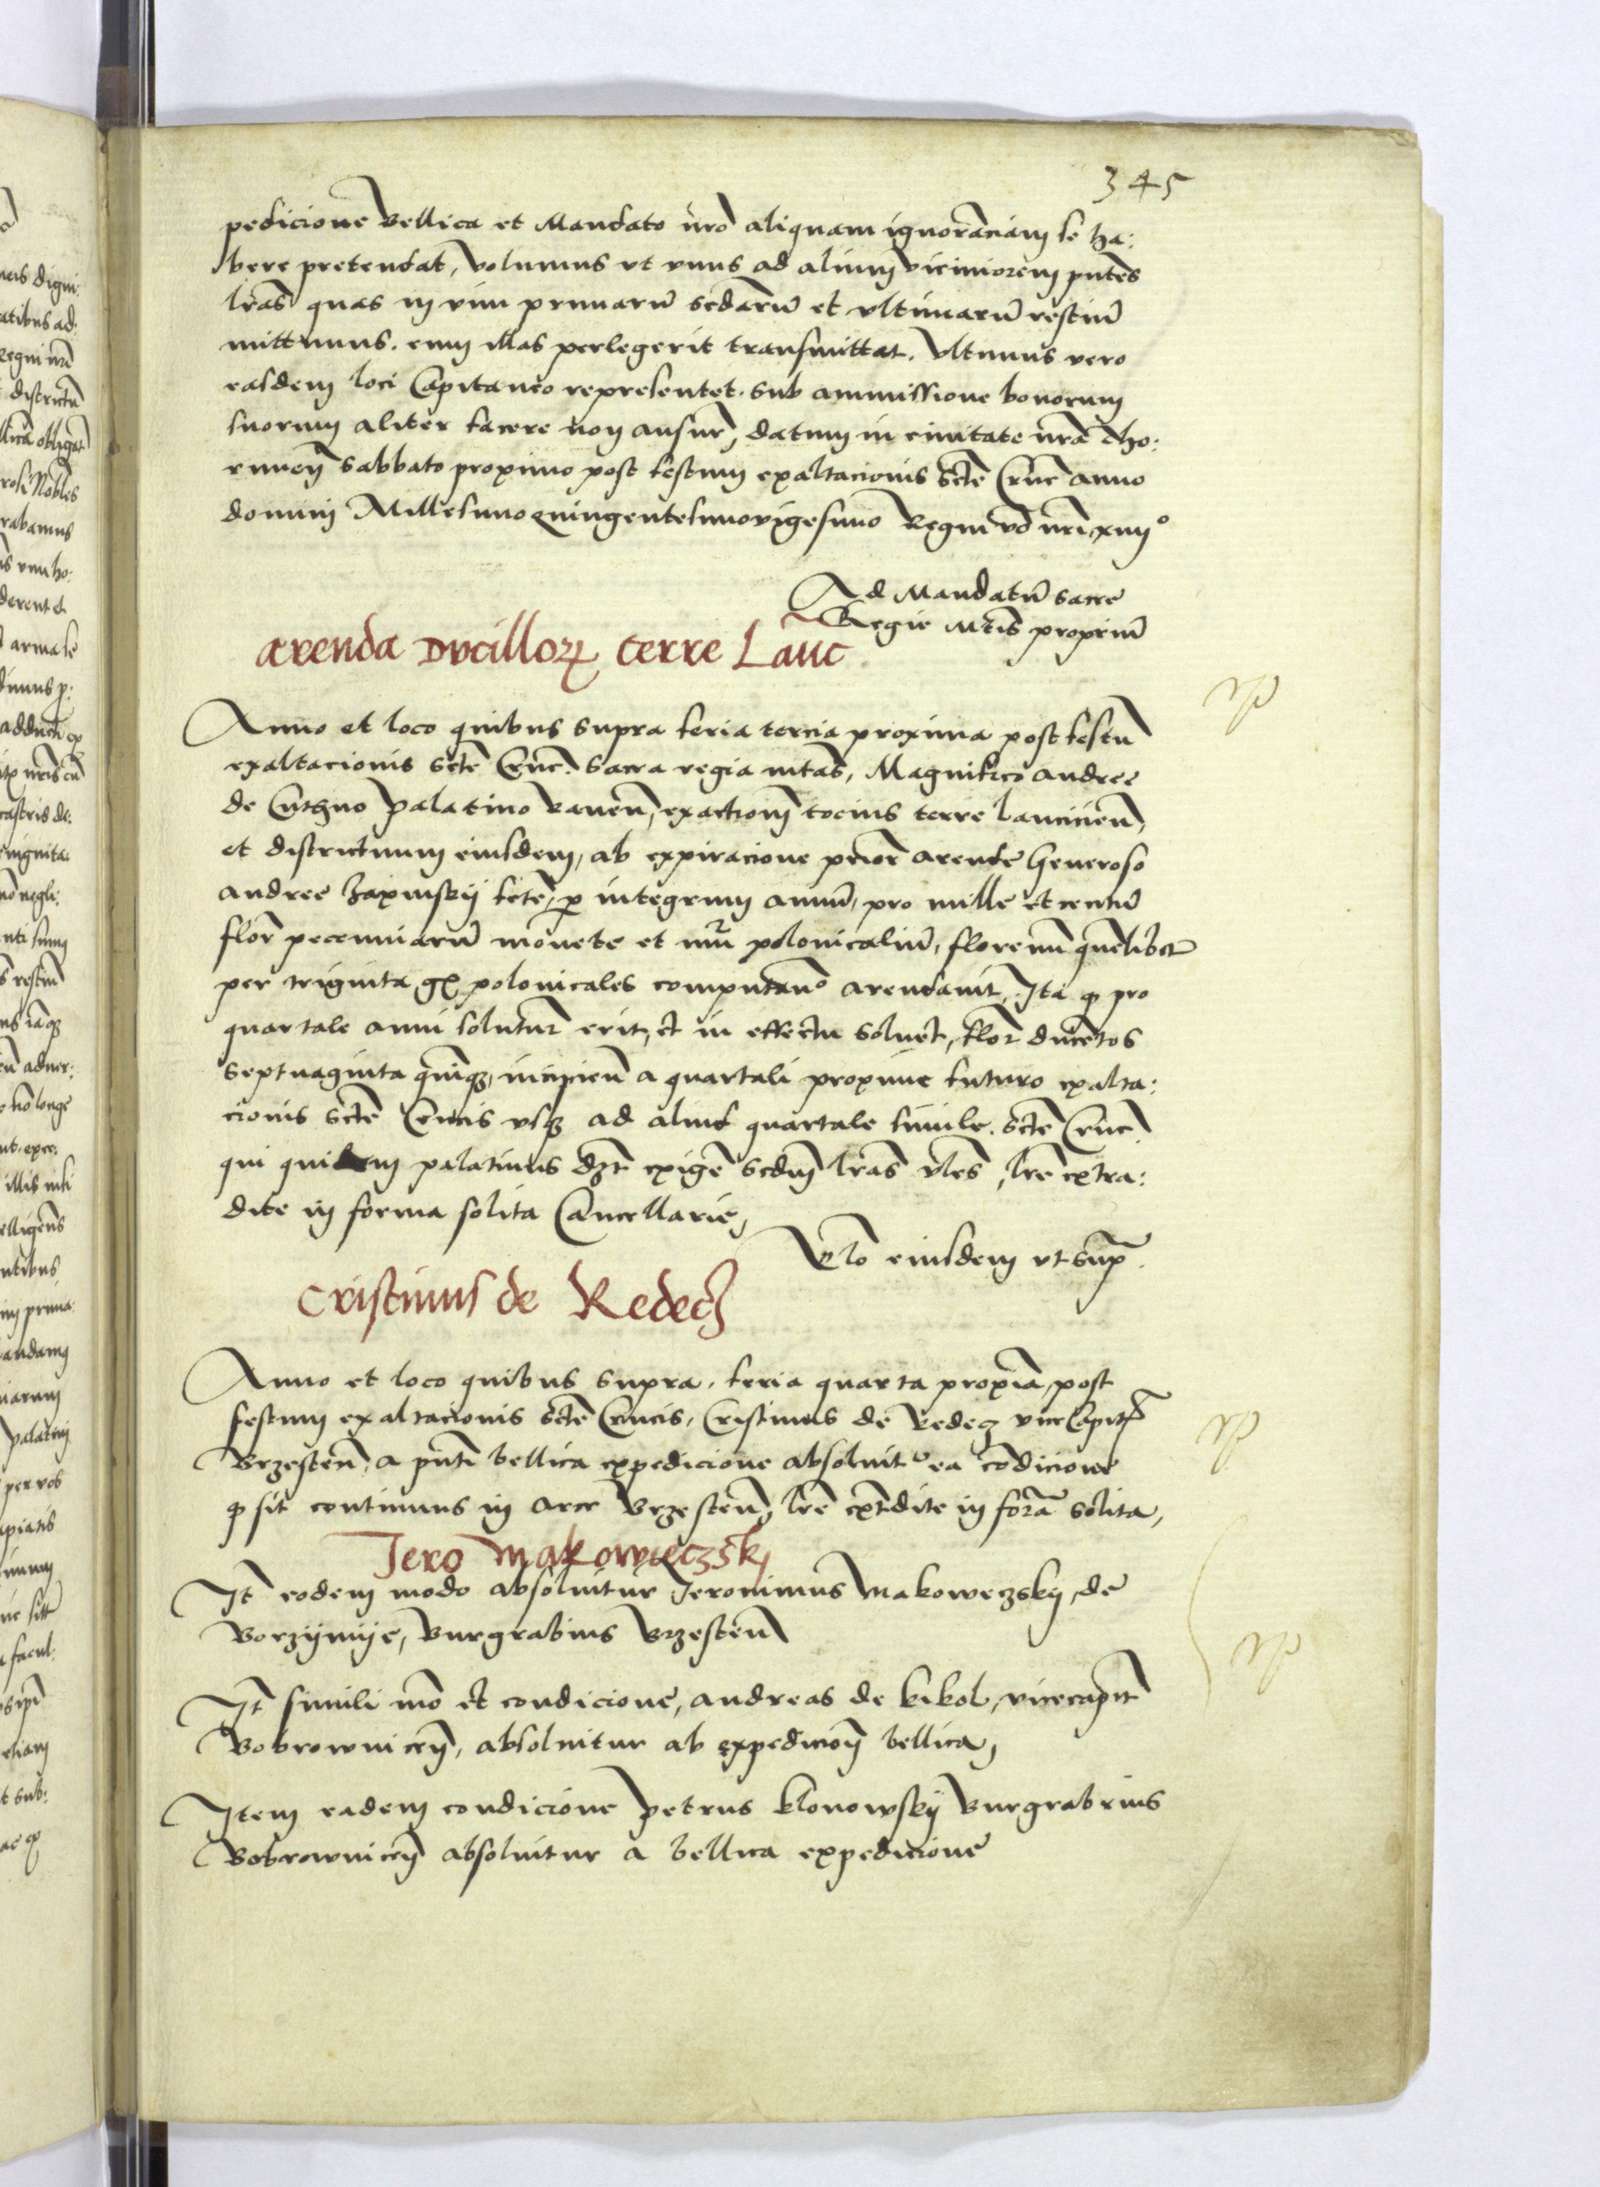 345
pedicione bellica et Mandato nrō aliquam ignorāciam se ha:
bere pretendat, volumus vt vnus ad alium viciniorem pntēs
lrās quas in vim primarū scdarū et vltimarū restiū
mittimus. cum illas perlegerit transmittat. Vltimus vero
easdem loci Capitaneo representet. sub ammissione bonorum
suorum aliter facere non ausur, datum in ciuitate nrā Tho:
runeñ Sabbato proximo post festum exaltacionis Sctē Cruc anno
domini Millesimo quingentesimo vigesimo Regni vō nrī xiiijº
Ad Mandatū Sacre
Regie Mtis propriū
arenda Ducillorꝝ terre Lanc
Anno et loco quibus supra feria tercia proxima post festū
exaltacionis Sctē Cruc. Sacra regia mtās, Magnifico Andree
de Cuthno palatino Raueñ, exactioñ tocius terre lancicieñ,
et districtuum eiusdem, ab expiracione prior arende Generoso
andree fctē, p integrum annū, pro mille et centū
flor pecuniarū monete et polonicaliū, florenū quēlibet
per triginta gꝝ polonicales computanº arendauit, Ita ꝙ pro
quartale anni soluturꝰ erit, et in effectu soluet, flor ducētos
septuaginta quīqꝫ, incipieñ a quartali proxime futuro exalta:
cionis Sctē Crucis vsqꝫ ad aliud quartale simile Sctē Cruc
qui quidem palatinus dꝫt exigē scdm lrās vles, lrē extra:
dite in forma solita Cancellarie,
Rlo eiusdem vt sup.
Cristinus de Redecz
Anno et loco quibus supra, feria quarta proxīa, post
festum exaltacionis Sctē Crucis, Cristinus de Redecz vice Capit
Brzesteñ, a pnti bellica expedicione absoluitº ea cōdicione
ꝙ sit continuus in arce Brzesteñ, lrē extdite in forā solita,
Jero Makowieczskj
It eodem modo absoluitur Jeronimus Makoweczskij, de
Borzijmije, Burgrabius Brzesteñ
It simili mō et condicione, andreas de kikol, vicecapit
Bobrowniceñ, absoluitur ab expedicioñ bellica,
Item eadem condicione petrus klonowskij Burgrabius
Bobrowniceñ absoluitur a bellica expedicione